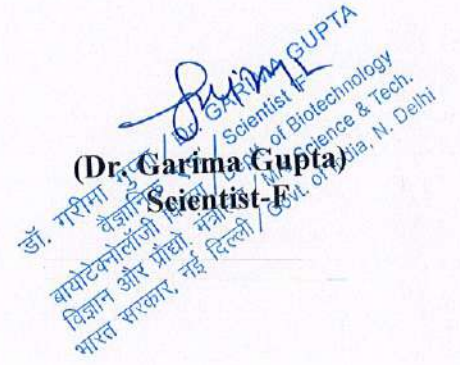 (Dr. Garima Gupta)
Scientist-F
डॉ. गरीमा गुप्ता / Dr. GARIMA GUPTA
वैज्ञानिक / Scientist F
बायोटेक्नोलॉजी विभाग / Dept. of Biotechnology
विज्ञान और प्रौद्यो. मंत्रालय / M/o Science & Tech.
भारत सरकार, नई दिल्ली / Govt. of India, N. Delhi